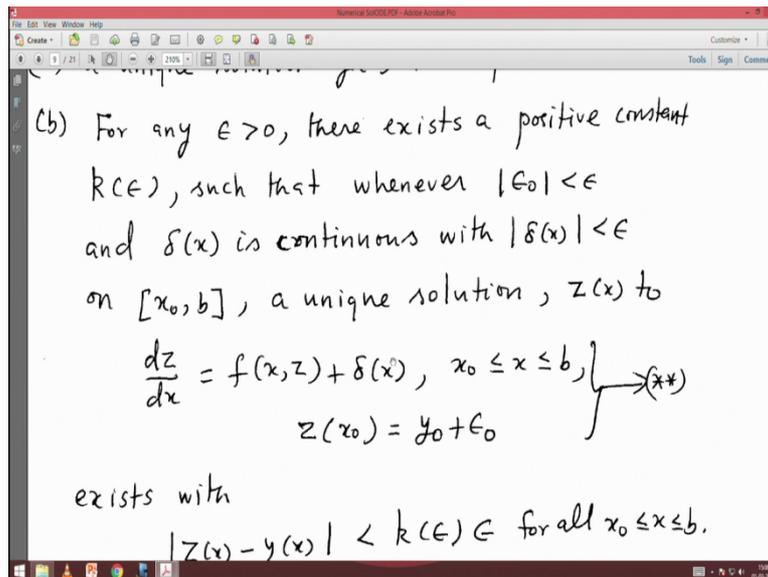 Numerical SolODE.PDF - Adobe Acrobat Pro
File Edit View Window Help
Create
Customize
9 / 21
210%
Tools Sign Comme
(b) For any ϵ >0, there exists a positive constant
k(ϵ), such that whenever |ϵ0| < ϵ
and δ(x) is continuous with |δ(x)| < ϵ
on [x0, b], a unique solution, z(x) to
dz/dx = f(x, z) + δ(x), x0 ≤ x ≤ b, (**)
z(x0) = y0 + ϵ0
exists with
|z(x) - y(x)| < k(ϵ) ϵ for all x0 ≤ x ≤ b.